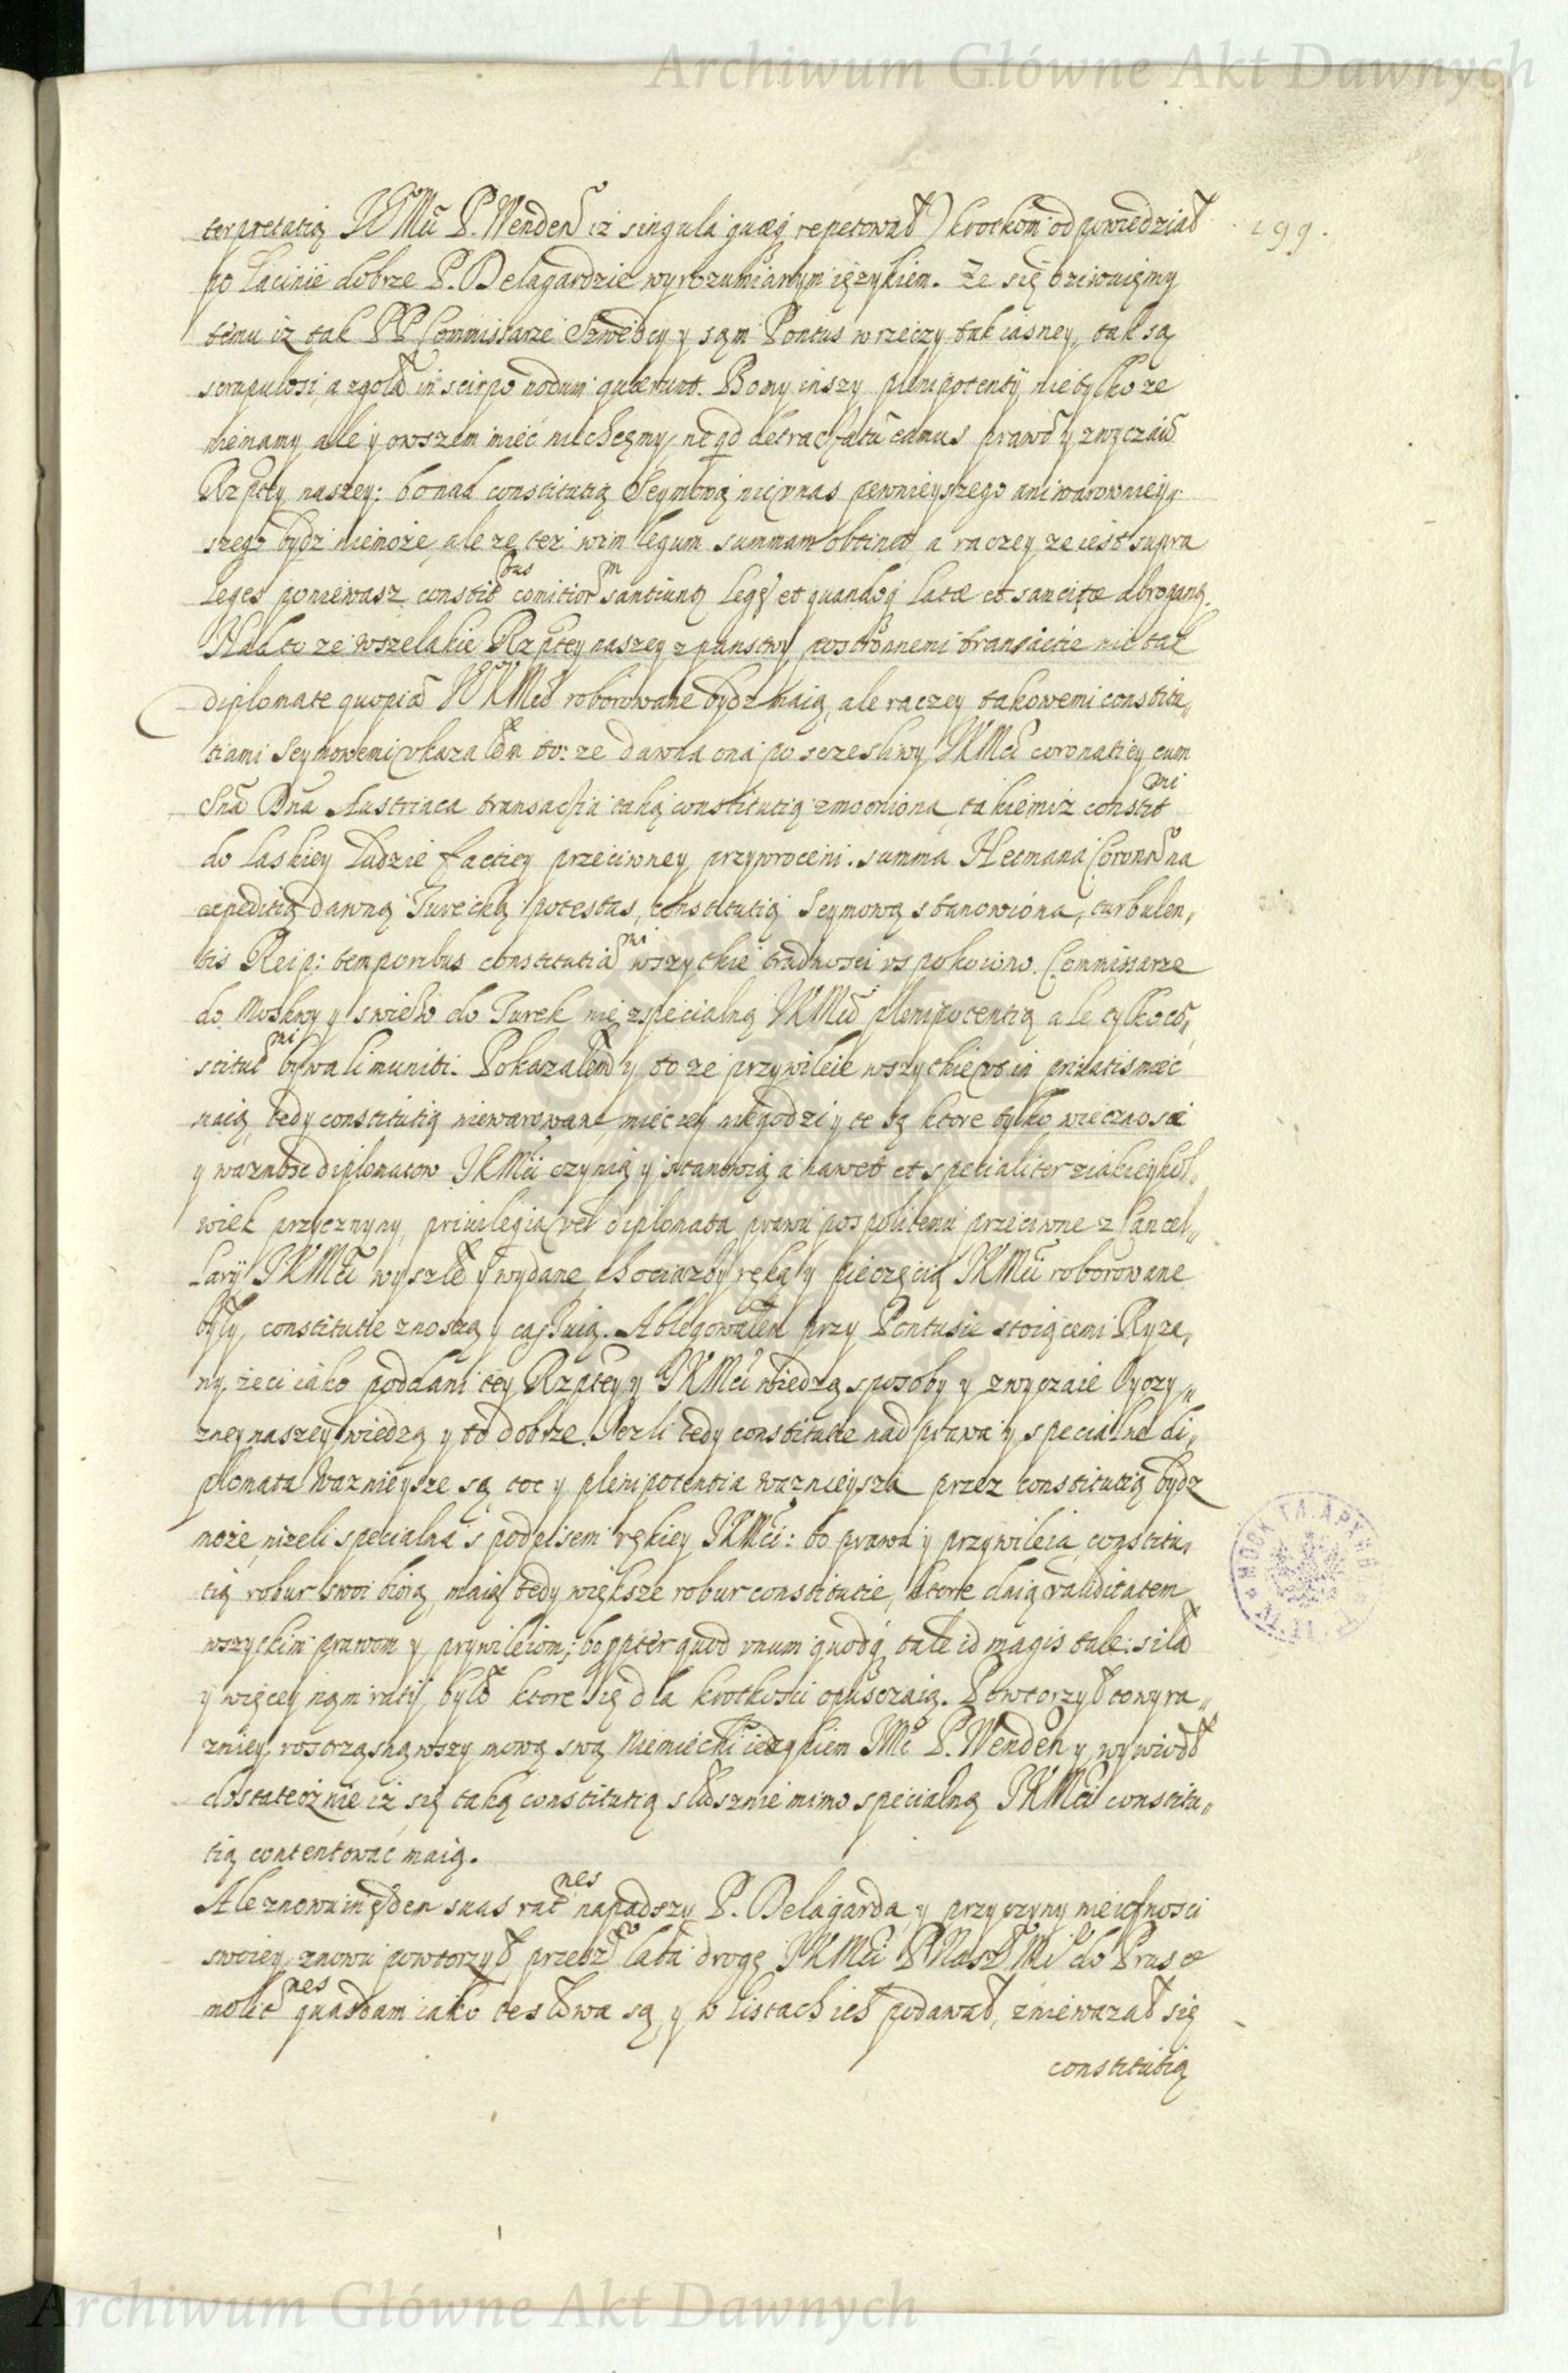 Archiwum Główne Akt Dawnych
terpretatią JE Mci P. Wenden iz singula quæq repetował) krotkom odpowiedział 199.
po łacinie dobrze P. Delagardzie wyrozumianym ięzykiem. Ze się dziwuięmy
temu iz tak PP Commissarze Szwedcy y sąm Pontus w rzeczy tak iasney, tak są
scrupulosi, a zgoła in scirpo nodum quærunt. Bo my inszy plenipotentij nie tylko ze
niemamy ale y owszem mieć niechcęmy, ne qd detractatu eamus prawo y zwyczaió
Rzptey naszey: bo nad constitutią Seymową nic u nas pewnieyszego ani warowniey„
szego bydz niemoże, ale ze tez wim legum summam obtinet, a raczey ze iest supra
leges poniewasz constitbus comitiorm santiunt leges et quandoq latæ et sancitæ abrogant.
Nad to ze wszelakie Rzptey naszey z panstwy postronnemi transactie nie tak
diplomate quopiã JKMci roborowane bydz maią, ale raczey takowemi constitu„
tiami Seymowemi ukazałem to: ze dawna ona po sczesliwy JKMci coronatiey cum
Snã Dnã Austriaca transactia taką constitutią zmocniona, takiemiz constitmi
do łaskiey ludzie factiey przeciwney przywroceni. summa Hetmana Coronn na
expeditią dawną Turecką potestas, constitutią Seymową stanowiona, turbulen„
tis Reip: temporibus constitutiami wszytkie trudnosci uspokoiono. Commissarze
do Moskwy y swiezo do Turek nie zspecialną JKMci plenipotentią ale tylko cõ„
stitutmi bywali muniti. Pokazałem y to ze przywileie wszytkie ut in privatis moc
maią, tedy constitutią niewarowane, mieć iey niegodzi y te są ktore tylko wiecznosci
y waznosc diplomatow JKMci czynią y stanowią a nawet et specialiter ziakieykol„
wiek przycznyny, privilegia vel diplomata prawu pospolitemu przeciwne z Cancel„
lariÿ JKMci wyszłe y wydane, chociazby ręką y pieczęcią JKMci roborowane
były, constitutie znoszą y cassuią. Allegowałem przy Pontusie stoiącemi Ryza„
ny, zeci iako poddani tey Rzptey y JKMci wiedzą sposoby y zwyczaie Oyczy„
zney naszey wiedzą y to dobrze. Jezli tedy constitutie nad prawa y specialne di„
plomata waznieysze są toc y plenipotentia waznieysza przez constitutią bydz
może, nizeli specialna s podpisem rękiey JKMci: bo prawa y przywileia constitu„
tią robur swoi biorą, maią tedy większe robur constitutie, ktore daią validitatem
wszytkim prawom y prywileiom; bo ppter quod unum quodq tale id magis tale: siła
y więcey nąm ratij było ktore się dla krotkosci opusczaią. Powtorzył to wyra„
zniey, roscząsnąwszy mową swą Niemieckim ięzykiem JMc P. Wenden y wywiodł
dostatecznie iz się taką constitutią słusznie mimo specialną JKMci constitu„
tią contentowac maią.
Ale znowu in easdem suas ratnes napadszy P. Delagarda, y przyczyny nieufnosci
swoiey znowu powtorzył przeszło lata drogę JKMci PNaszego Mi do Prus &
molitnes quasdam iako te słowa są, y w listach ich podawał, zniewazał się
constitutią
Archiwum Główne Akt Dawnych